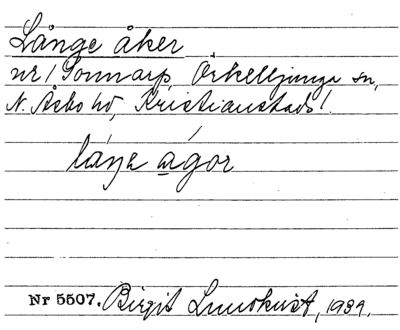 Långe åker
nr 1 Sonnarp, Örkelljunga sn,
N. Åsbo hd, Kristianstads l.
láŋe ágor
Nr 5507. Birgit Lundkvist, 1939.